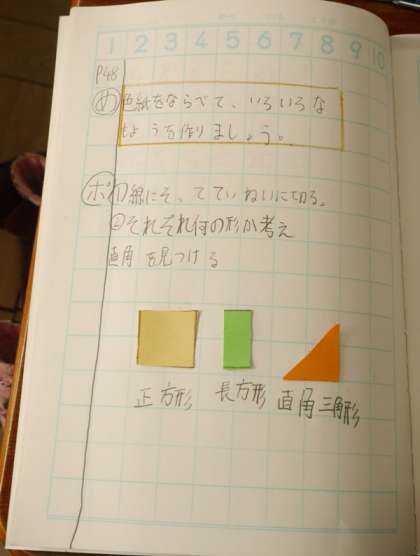 1 2 3 4 5 6 7 8 9 10
P48
め 色紙をならべて、いろいろな
もようを作りましょう。
ポ ①線にそってていねいに切る。
②それぞれ何の形か考え
直角を見つける
正方形 長方形 直角三角形